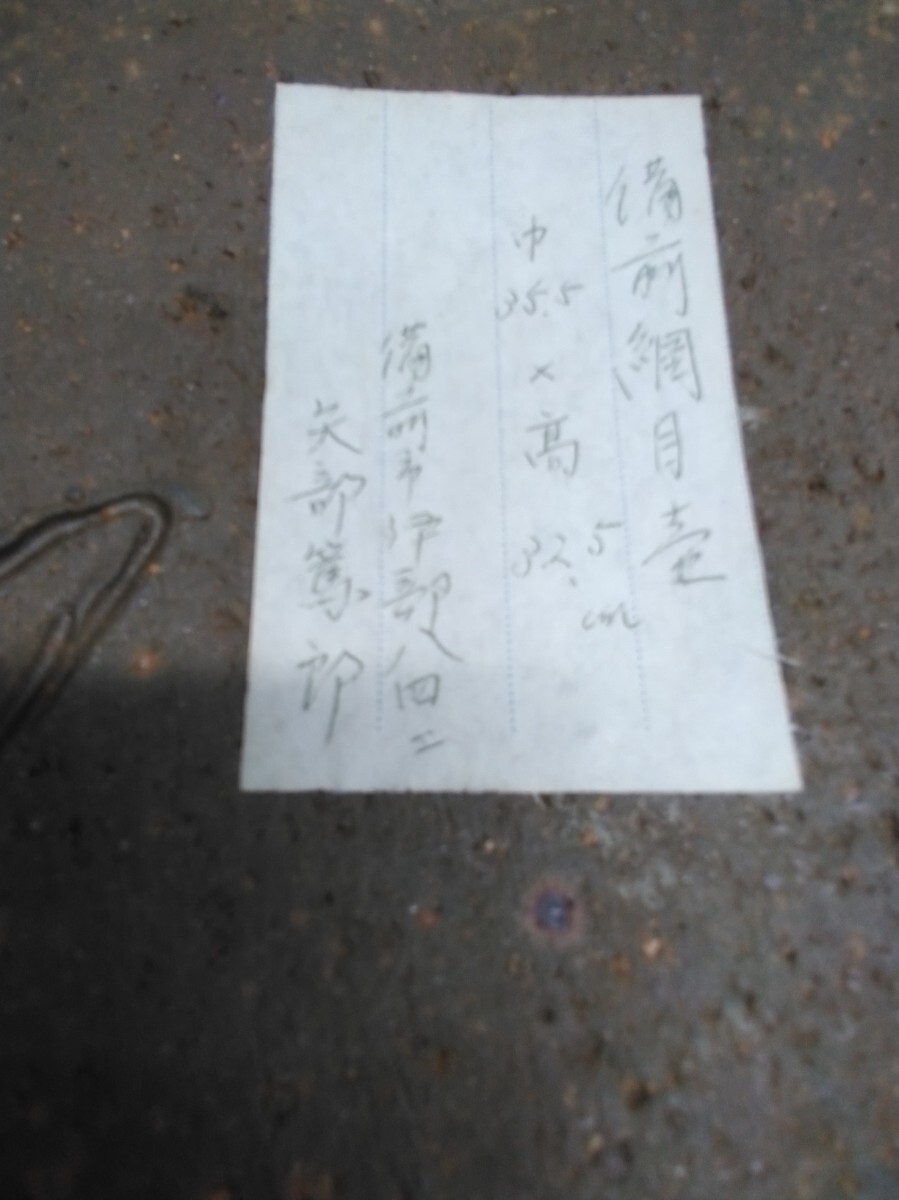 備前網目壷
巾35.5×高32.5cm
備前市伊部八四二
矢部篤郎